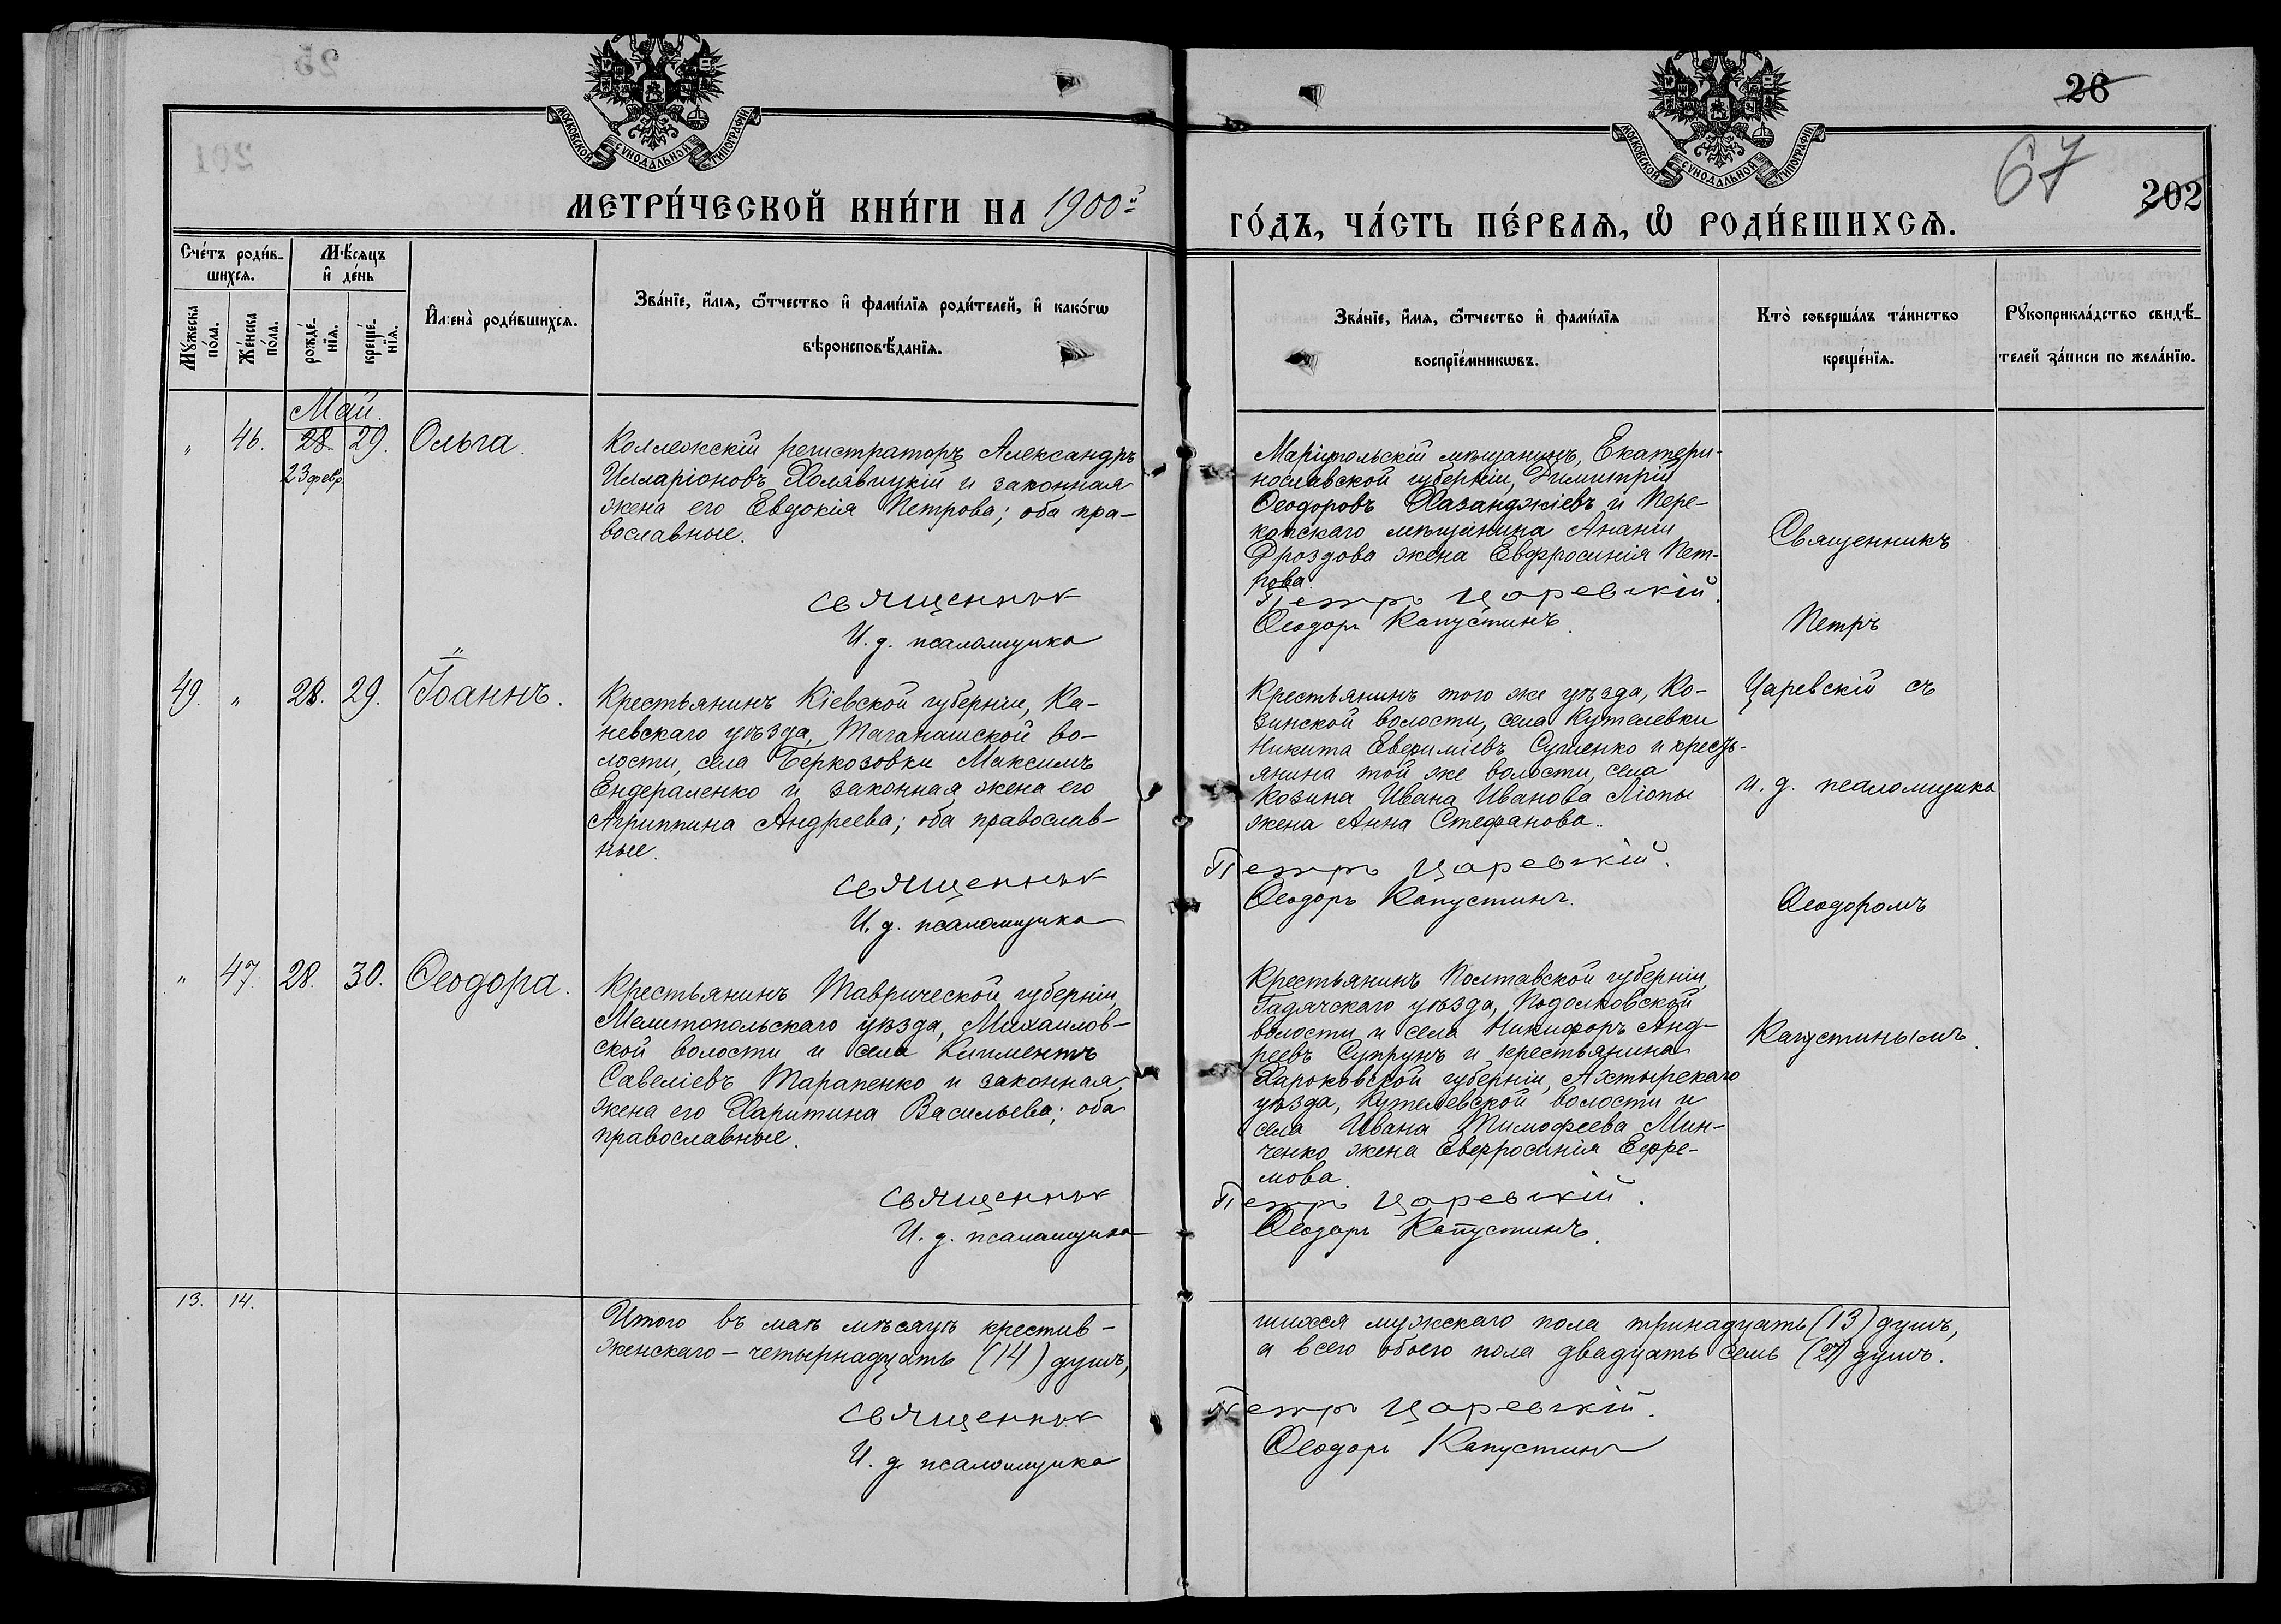 26
67
202
МОСКОВСКОЙ СУНОДАЛЬНОЙ ТИПОГРАФІИ.
МОСКОВСКОЙ СУНОДАЛЬНОЙ ТИПОГРАФІИ.
МЕТРИ́ЧЕСКОЙ КНИ́ГИ НА 1900й
ГО́ДЪ, ЧА́СТЬ ПЕ́РВАѦ, Ѽ РОДИ́ВШИХСѦ.
Сче́тъ роди́в-
шихсѧ.
Мꙋ́жеска по́ла.
Же́нска по́ла.
Мѣ́сяцъ
и҆ де́нь
рожде́-
нїѧ.
креще́-
нїѧ.
И҆мена̀ роди́вшихсѧ.
Зва́нїе, и҆́мѧ, ѻ҆́тчество и҆ фами́лїѧ роди́телей, и҆ како́гѡ
вѣроисповѣ́данїѧ.
Зва́нїе, и҆́мѧ, ѻ҆́тчество и҆ фами́лїѧ
воспрїе́мникѡвъ.
Кто̀ соверша́лъ та́инство
креще́нїѧ.
Рꙋкоприкла́дство свидѣ́-
телей за́писи по жела́нїю.
Май.
" 46. 28. 29. Ольга.
23 февр.
Коллежскій регистраторъ Александръ
Илларіоновъ Холявицкій и законная
жена его Евдокія Петрова; оба пра-
вославные.
Священник
И. д. псаломщика
Маріупольскій мѣщанинъ, Екатери-
нославской губерніи, Димитрій
Ѳеодоровъ Хазанджіевъ и Пере-
копскаго мѣщанина Ананіи
Дроздова жена Евфросинія Пет-
рова.
Петръ Царевскій.
Ѳеодоръ Капустинъ.
Священникъ
Петръ
Царевскій съ
и. д. псаломщика
Ѳеодоромъ
Капустинымъ.
49. " 28. 29. Іоаннъ.
Крестьянинъ Кіевской губерніи, Ка-
невскаго уѣзда, Таганашской во-
лости, села Беркозовки Максимъ
Ендераленко и законная жена его
Агриппина Андреева; оба православ-
ные.
Священник
И. д. псаломщика
Крестьянинъ того же уѣзда, Ко-
зинской волости, села Кутелевки
Никита Евфиміевъ Сушенко и кресть-
янина той же волости, села
Козина Ивана Иванова Ліопы
жена Анна Стефанова.
Петръ Царевскій.
Ѳеодоръ Капустинъ.
" 47. 28. 30. Ѳеодора.
Крестьянинъ Таврической губерніи,
Мелитопольскаго уѣзда, Михайлов-
ской волости и села Климентъ
Савеліевъ Тарапенко и законная
жена его Харитина Васильева; оба
православные.
Священник
И. д. псаломщика
Крестьянинъ Полтавской губерніи,
Гадячскаго уѣзда, Подолковской
волости и села Никифоръ Анд-
реевъ Супрунъ и крестьянина
Харьковской губерніи, Ахтырскаго
уѣзда, Кутелевской волости и
села Ивана Тимофеева Мин-
ченко жена Евфросинія Ефре-
мова.
Петръ Царевскій.
Ѳеодоръ Капустинъ.
13. 14.
Итого въ маѣ мѣсяцѣ крестив-
шихся мужскаго пола тринадцать (13) душъ,
женскаго – четырнадцать (14) душъ,
а всего обоего пола двадцать семь (27) душъ.
Священник
И. д. псаломщика
Петръ Царевскій.
Ѳеодоръ Капустинъ